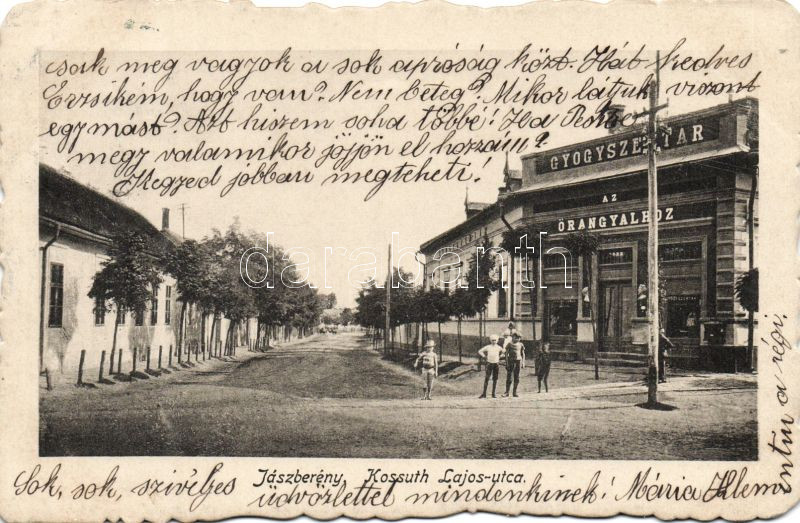 csak meg vagyok a sok apróság közt. Hát kedves
Erzsikém, hogy van? Nem beteg? Mikor látjuk viszont
egymást? Azt hiszem soha többé! Ha Pestre
megy valamikor jöjjön el hozzám?
Hegyed jobban megteheti!
GYÓGYSZERTÁR
AZ
ŐRANGYALHOZ
darabanth
Jászberény, Kossuth Lajos-utca.
Sok, sok, szivélyes
üdvözlettel mindenkinek! Mária Klementin a régi.